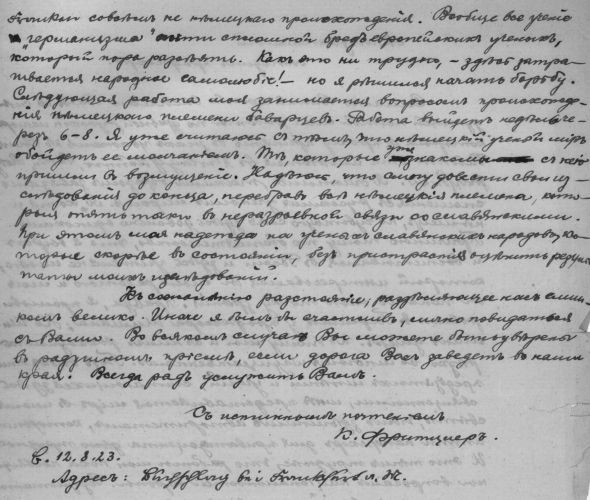 Franken совсѣмъ не нѣмецкаго происхожденія. Вообще все ученіе
"германизма" почти сплошной бредъ европейскихъ ученыхъ,
который пора разсѣять. Какъ это ни трудно, – здѣсь затра-
гивается народное самолюбіе! – но я рѣшился начать борьбу.
Слѣдующая работа моя занимается вопросомъ происхожде-
нія нѣмецкаго племени баварцевъ. Работа выйдетъ недѣль че-
резъ 6–8. Я уже считаюсь съ тѣмъ, что нѣмецкій ученый міръ
обойдетъ ее молчаніемъ. Тѣ, которые уже знакомы съ ней
пришли въ возмущеніе. Надѣюсь, что смогу довести свои из-
слѣдованія до конца, перебравъ всѣ нѣмецкія племена, кото-
рыя опять таки въ неразрывной связи со славянскими.
При этомъ моя надежда на ученыхъ славянскихъ народовъ, ко-
торые скорѣе въ состояніи, безъ пристрастія оцѣнить резуль-
таты моихъ изслѣдованій.
Къ сожалѣнію разстояніе, раздѣляющее насъ слиш-
комъ велико. Иначе я былъ бы счастливъ, лично повидаться
съ Вами. Во всякомъ случаѣ Вы можете быть увѣрены
въ радушномъ пріемѣ, если дорога Васъ заведетъ въ наши
края. Всегда радъ услужить Вамъ.
Съ истиннымъ почтеніемъ
К. Фритцлеръ.
12.8.23.
Адресъ: Buchschlag bei Frankfurt a. M.